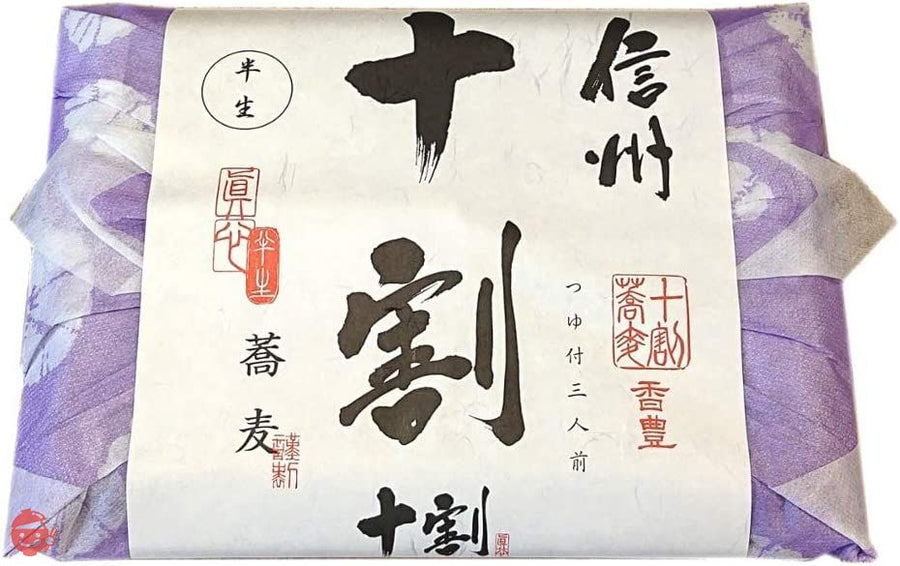 信州
十割
蕎麦十割
香豊
つゆ付三人前
十割
半生
眞芯
半生
蕎麦
謹製